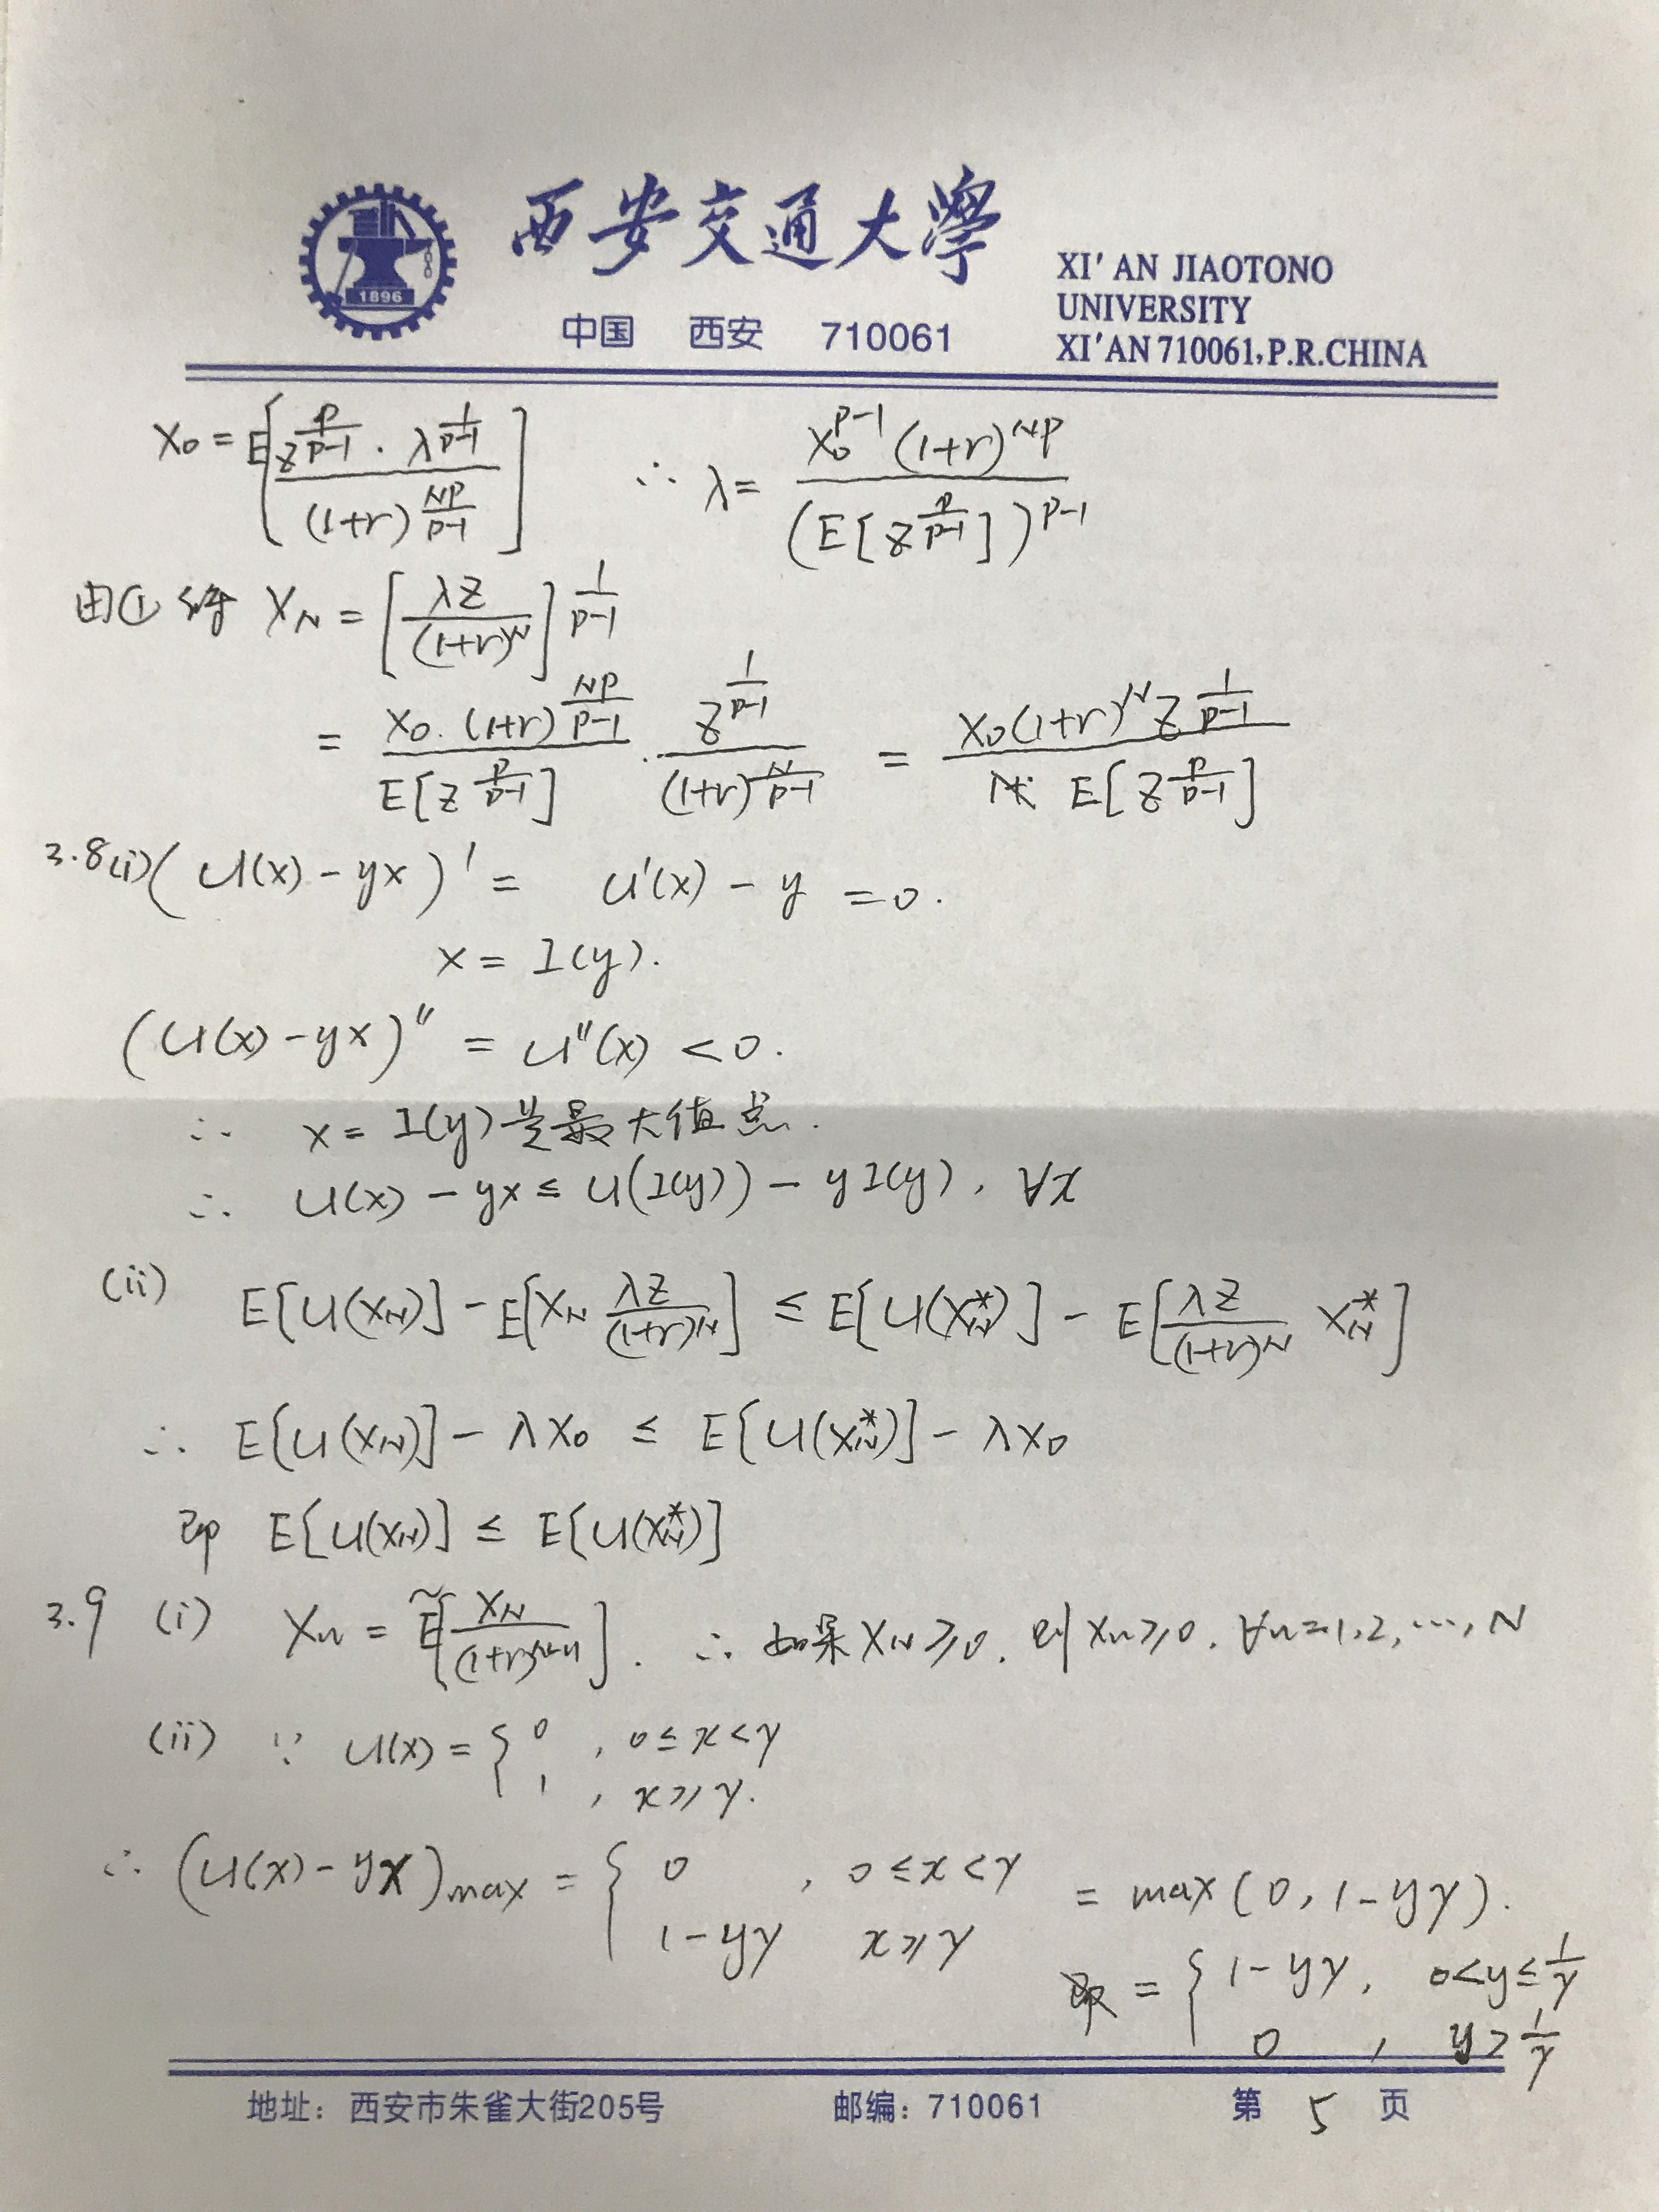 西安交通大學
XI'AN JIAOTONO
UNIVERSITY
XI'AN 710061, P.R.CHINA
中国 西安 710061
1896
X₀ = E[Z^{p/(p-1)} · λ^{1/(p-1)} / (1+r)^{Np/(p-1)}] ∴ λ = X₀^{p-1}(1+r)^{Np} / (E[Z^{p/(p-1)}])^{p-1}
由① 得 X_N = [λZ/(1+r)^N]^{1/(p-1)}
= X₀·(1+r)^{Np/(p-1)} / E[Z^{p/(p-1)}] · Z^{1/(p-1)} / (1+r)^{N/(p-1)} = X₀(1+r)^N Z^{1/(p-1)} / E[Z^{p/(p-1)}]
3.8(i) (U(x) - yx)' = U'(x) - y = 0.
x = I(y).
(U(x) - yx)'' = U''(x) < 0.
∴ x = I(y)是最大值点.
∴ U(x) - yx ≤ U(I(y)) - yI(y), ∀x
(ii) E[U(X_N)] - E[X_N λZ/(1+r)^N] ≤ E[U(X_N^*)] - E[λZ/(1+r)^N X_N^*]
∴ E[U(X_N)] - λX₀ ≤ E[U(X_N^*)] - λX₀
即 E[U(X_N)] ≤ E[U(X_N^*)]
3.9 (i) X_n = Ẽ[X_N/(1+r)^{N-n}]. ∴ 如果X_N ≥ 0, 则X_n ≥ 0, ∀n=1,2,…,N
(ii) ∵ U(x) = { 0 , 0 ≤ x < γ
1 , x ≥ γ.
∴ (U(x) - yx)_max = { 0 , 0 ≤ x < γ = max(0, 1 - yγ).
1 - yγ x ≥ γ
= { 1 - yγ, 0 < y ≤ 1/γ
0 , y > 1/γ
地址：西安市朱雀大街205号 邮编：710061 第 5 页